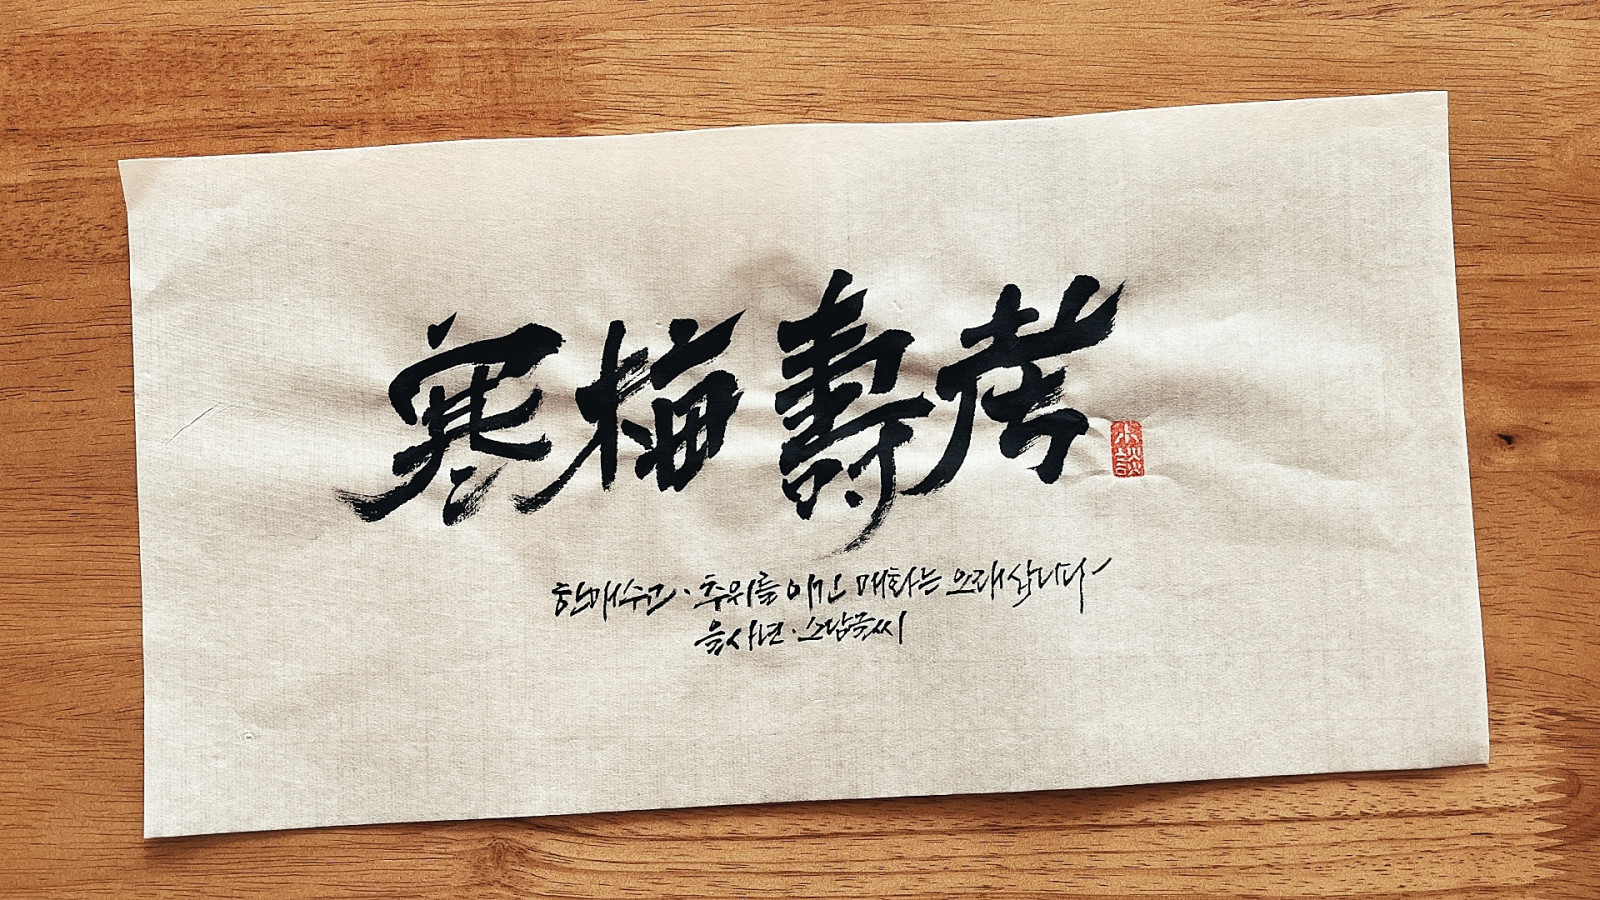 寒梅壽考
小談
한매수고·추위를 이긴 매화는 오래삽니다
을사년·소담글씨